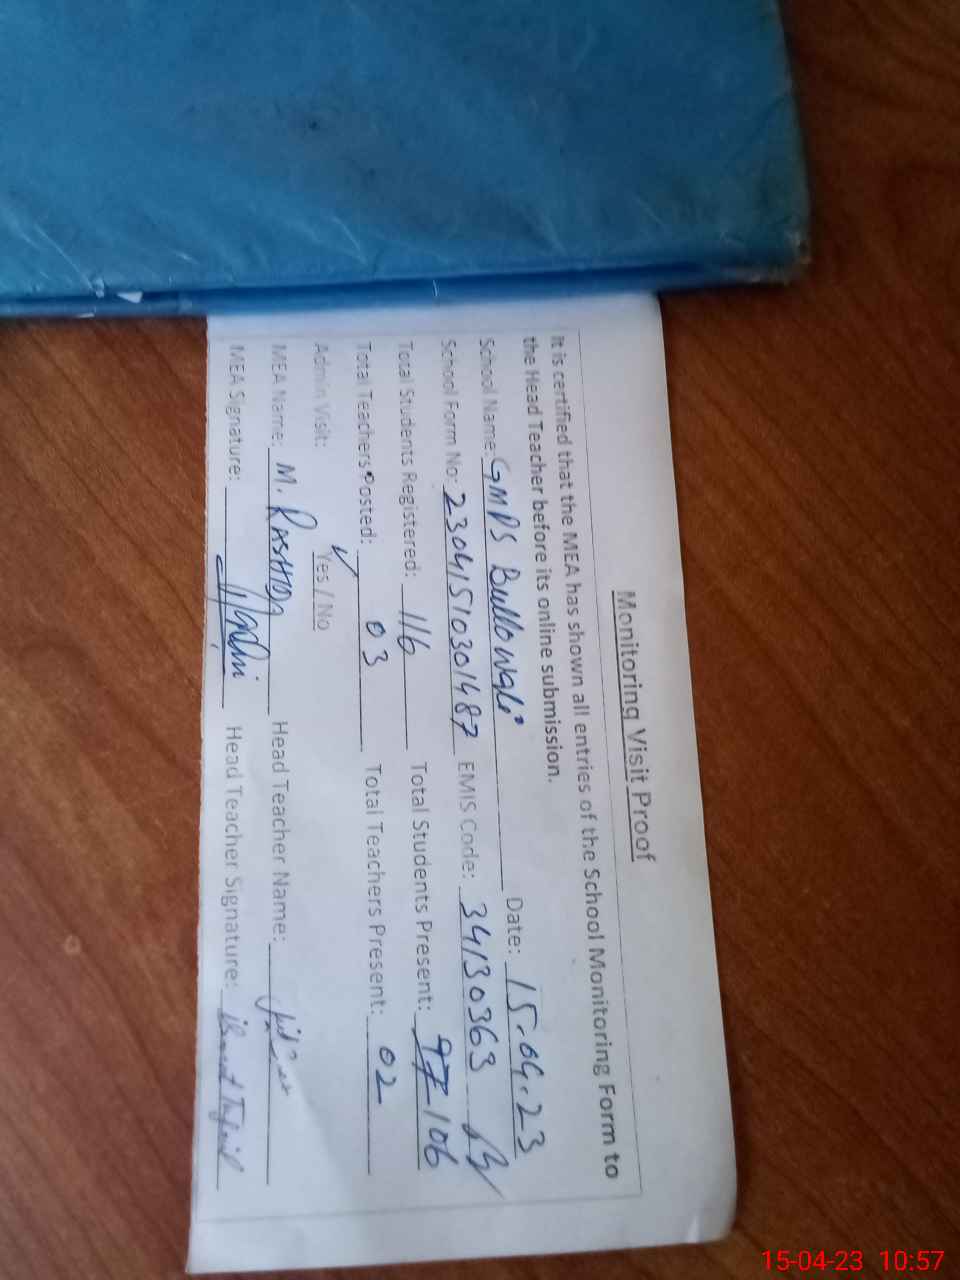 Monitoring Visit Proof
It is certified that the MEA has shown all entries of the School Monitoring Form to
the Head Teacher before its online submission.
School Name: GMPS Bullowali Date: 15.04.23
School Form No: 23041510301487 EMIS Code: 34130363
Total Students Registered: 116 Total Students Present: 97 106
Total Teachers Posted: 03 Total Teachers Present: 02
Admin Visit: Yes / No
MEA Name: M. RASHID Head Teacher Name:
MEA Signature: Head Teacher Signature:
15-04-23 10:57